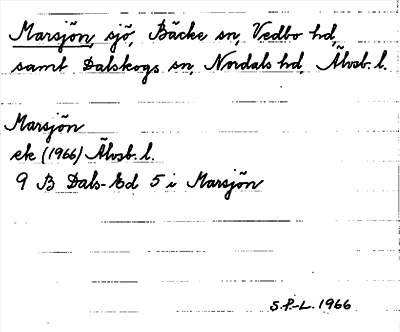 Marsjön, sjö, Bäcke sn, Vedbo hd,
samt Dalskogs sn, Nordals hd, Älvsb. l.
Marsjön
ek (1966) Älvsb. l.
9 B Dals-Ed 5 i Marsjön
S.P.-L. 1966